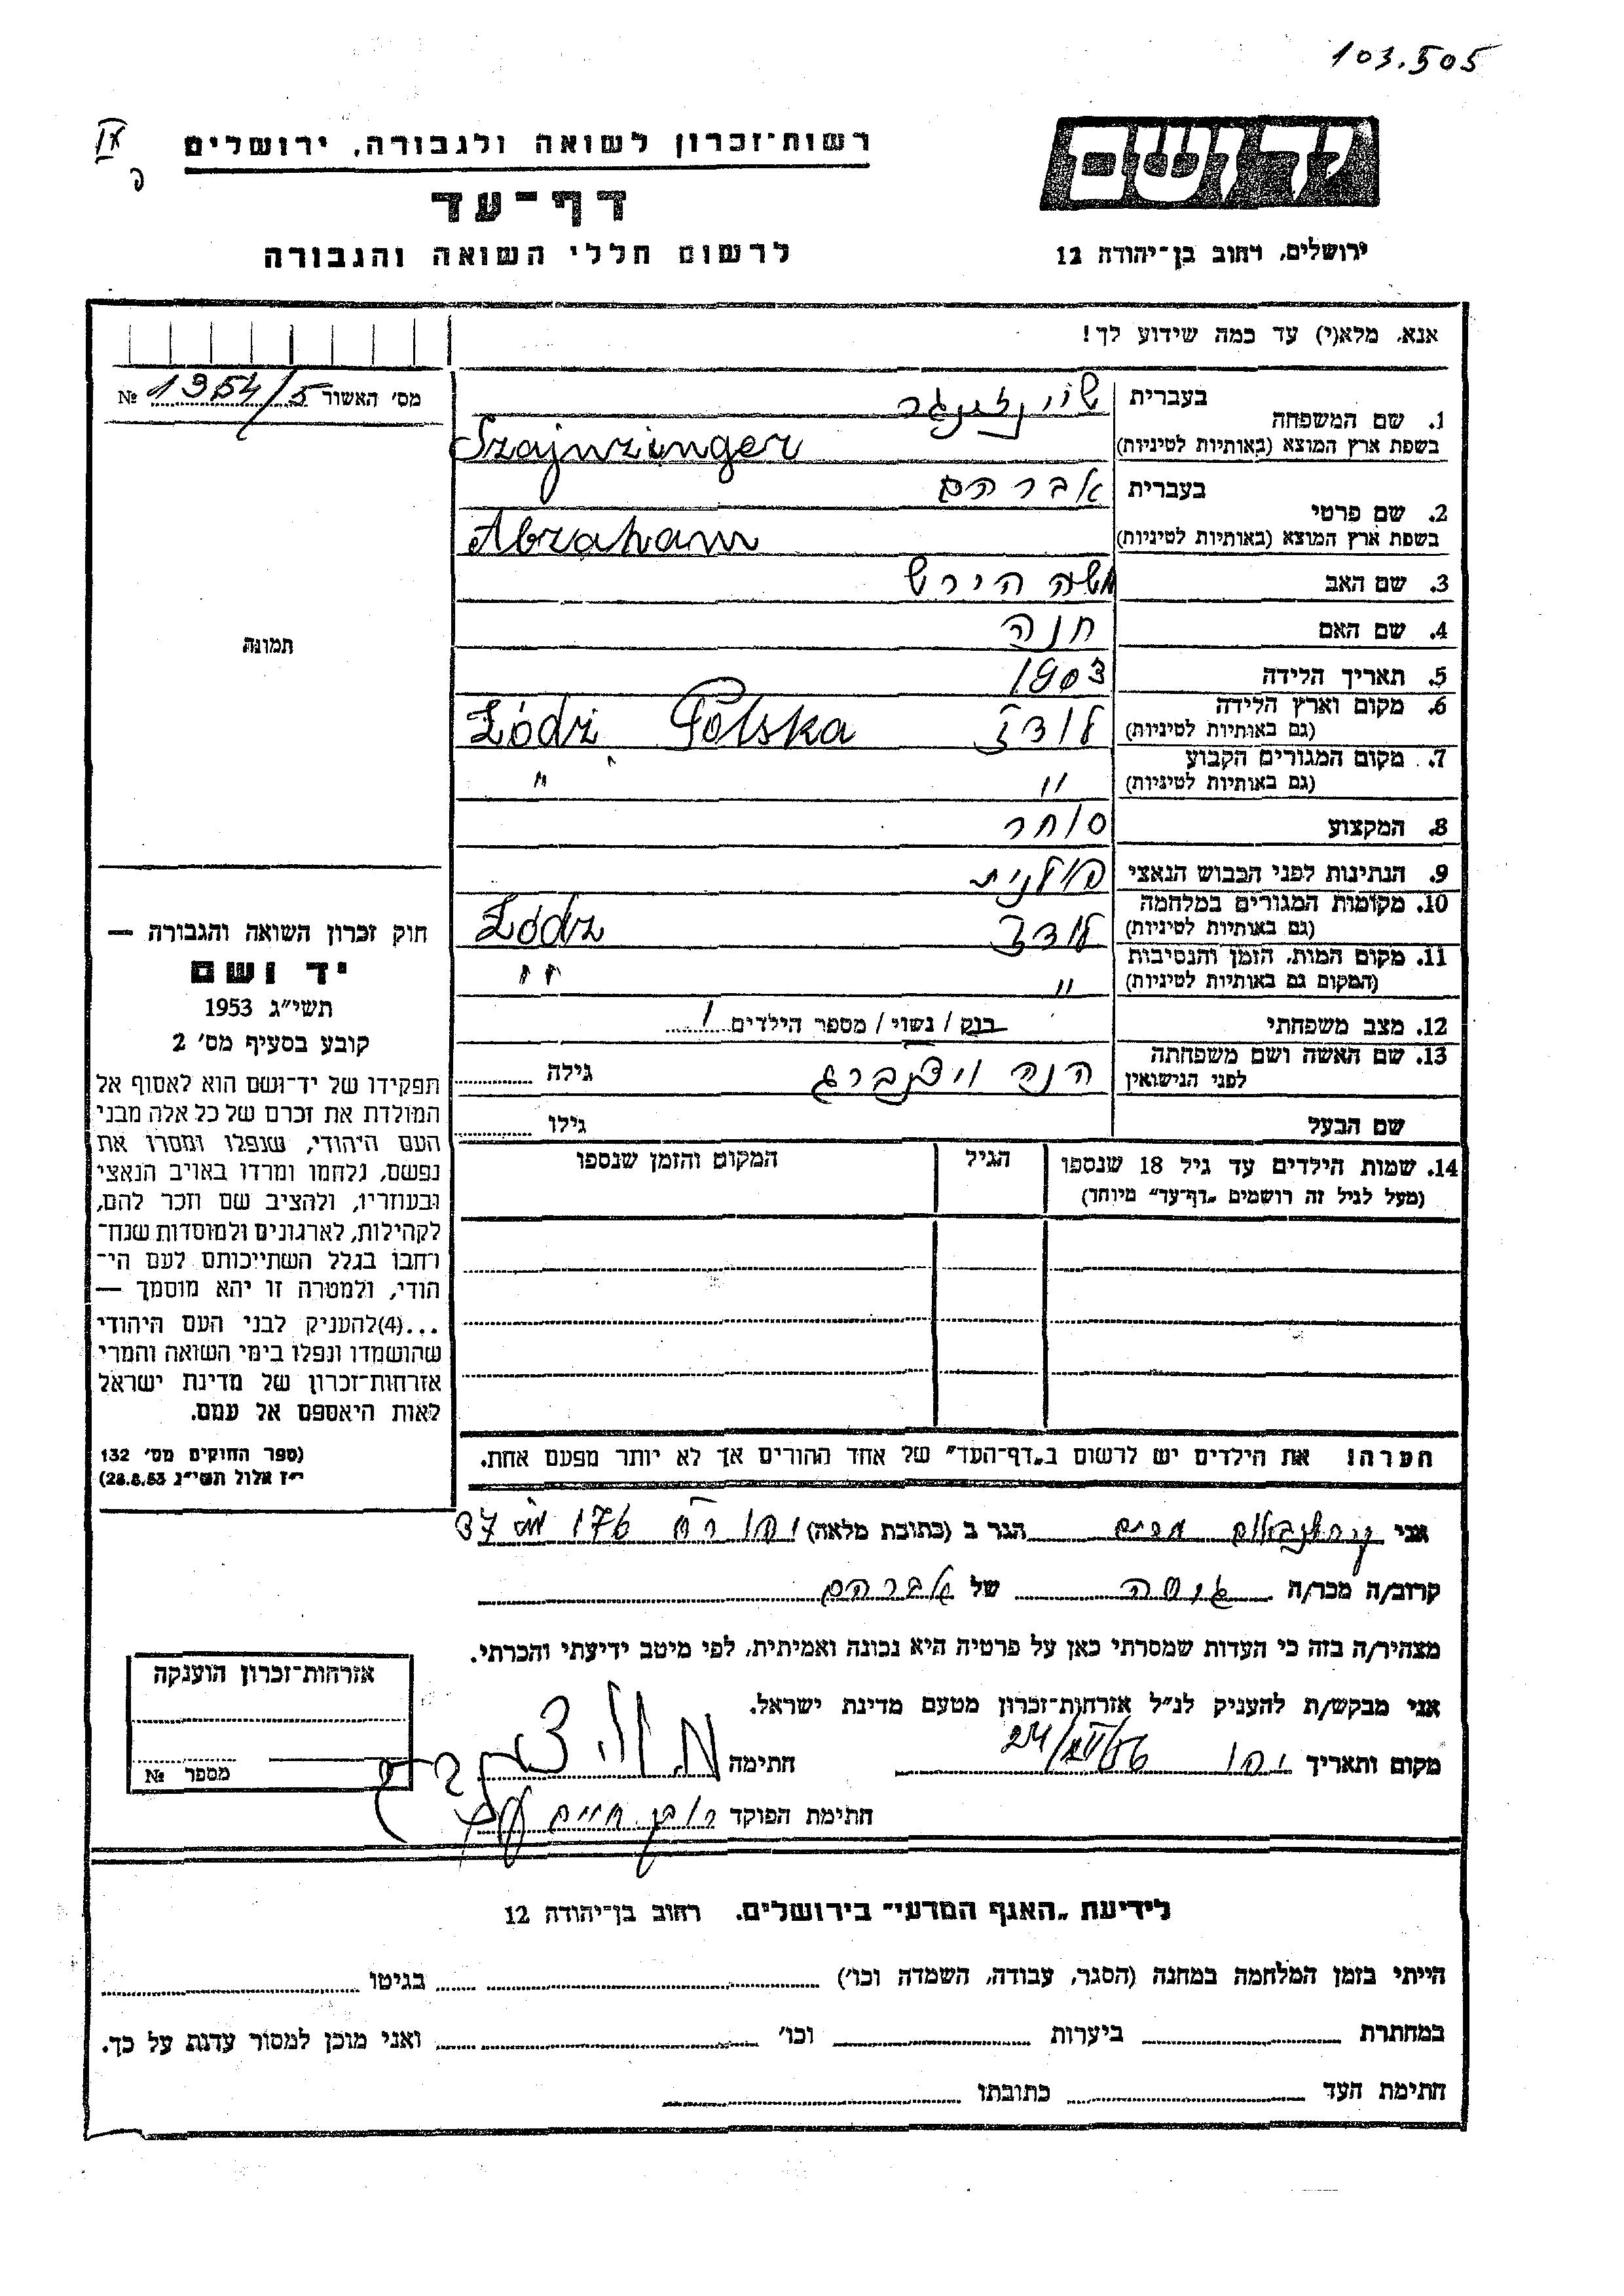 103.505
יד ושם
רשות־זכרון לשואה ולגבורה, ירושלים
דף־עד
ירושלים, רחוב בן־יהודה 12
לרשום חללי השואה והגבורה
אנא, מלא(י) עד כמה שידוע לך!
מס' האשור 1354/5 №
1. שם המשפחה
בעברית שיינזינגר
בשפת ארץ המוצא (באותיות לטיניות) Szajnzinger
2. שם פרטי
בעברית אברהם
בשפת ארץ המוצא (באותיות לטיניות) Abraham
3. שם האב משה הירש
4. שם האם חנה
5. תאריך הלידה 1903
6. מקום וארץ הלידה
(גם באותיות לטיניות) לודז Łódź Polska
7. מקום המגורים הקבוע
(גם באותיות לטיניות) " "
8. המקצוע סוחר
9. הנתינות לפני הכבוש הנאצי פולנית
10. מקומות המגורים במלחמה
(גם באותיות לטיניות) לודז Łódz
11. מקום המות, הזמן והנסיבות
(המקום גם באותיות לטיניות) " "
12. מצב משפחתי רווק / נשוי / מספר הילדים 1
13. שם האשה ושם משפחתה
לפני הנישואין הנה גילה
שם הבעל גילו
14. שמות הילדים עד גיל 18 שנספו
(מעל לגיל זה רושמים „דף־עד" מיוחד)
הגיל
המקום והזמן שנספו
הערה! את הילדים יש לרשום ב„דף־העד" של אחד ההורים אך לא יותר מפעם אחת.
תמונה
חוק זכרון השואה והגבורה —
יד ושם
תשי"ג 1953
קובע בסעיף מס' 2
תפקידו של יד־ושם הוא לאסוף אל
המולדת את זכרם של כל אלה מבני
העם היהודי, שנפלו ומסרו את
נפשם, נלחמו ומרדו באויב הנאצי
ובעוזריו, ולהציב שם וזכר להם,
לקהילות, לארגונים ולמוסדות שנח־
רחבו בגלל השתייכותם לעם הי־
הודי, ולמטרה זו יהא מוסמך —
...(4)להעניק לבני העם היהודי
שהושמדו ונפלו בימי השואה והמרי
אזרחות־זכרון של מדינת ישראל
לאות היאספם אל עמם.
(ספר החוקים מס' 132
י"ז אלול תשי"ג 28.8.53)
אני הגר ב (כתובת מלאה) 176 37
קרוב/ה מכר/ה גיסה של אברהם
מצהיר/ה בזה כי העדות שמסרתי כאן על פרטיה היא נכונה ואמיתית, לפי מיטב ידיעתי והכרתי.
אני מבקש/ת להעניק לנ"ל אזרחות־זכרון מטעם מדינת ישראל.
מקום ותאריך יפו חתימה
חתימת הפוקד חיים
אזרחות־זכרון הוענקה
מספר №
לידיעת „האגף המדעי" בירושלים. רחוב בן־יהודה 12
הייתי בזמן המלחמה במחנה (הסגר, עבודה, השמדה וכו') בגיטו
במחתרת ביערות וכו' ואני מוכן למסור עדות על כך.
חתימת העד כתובתו